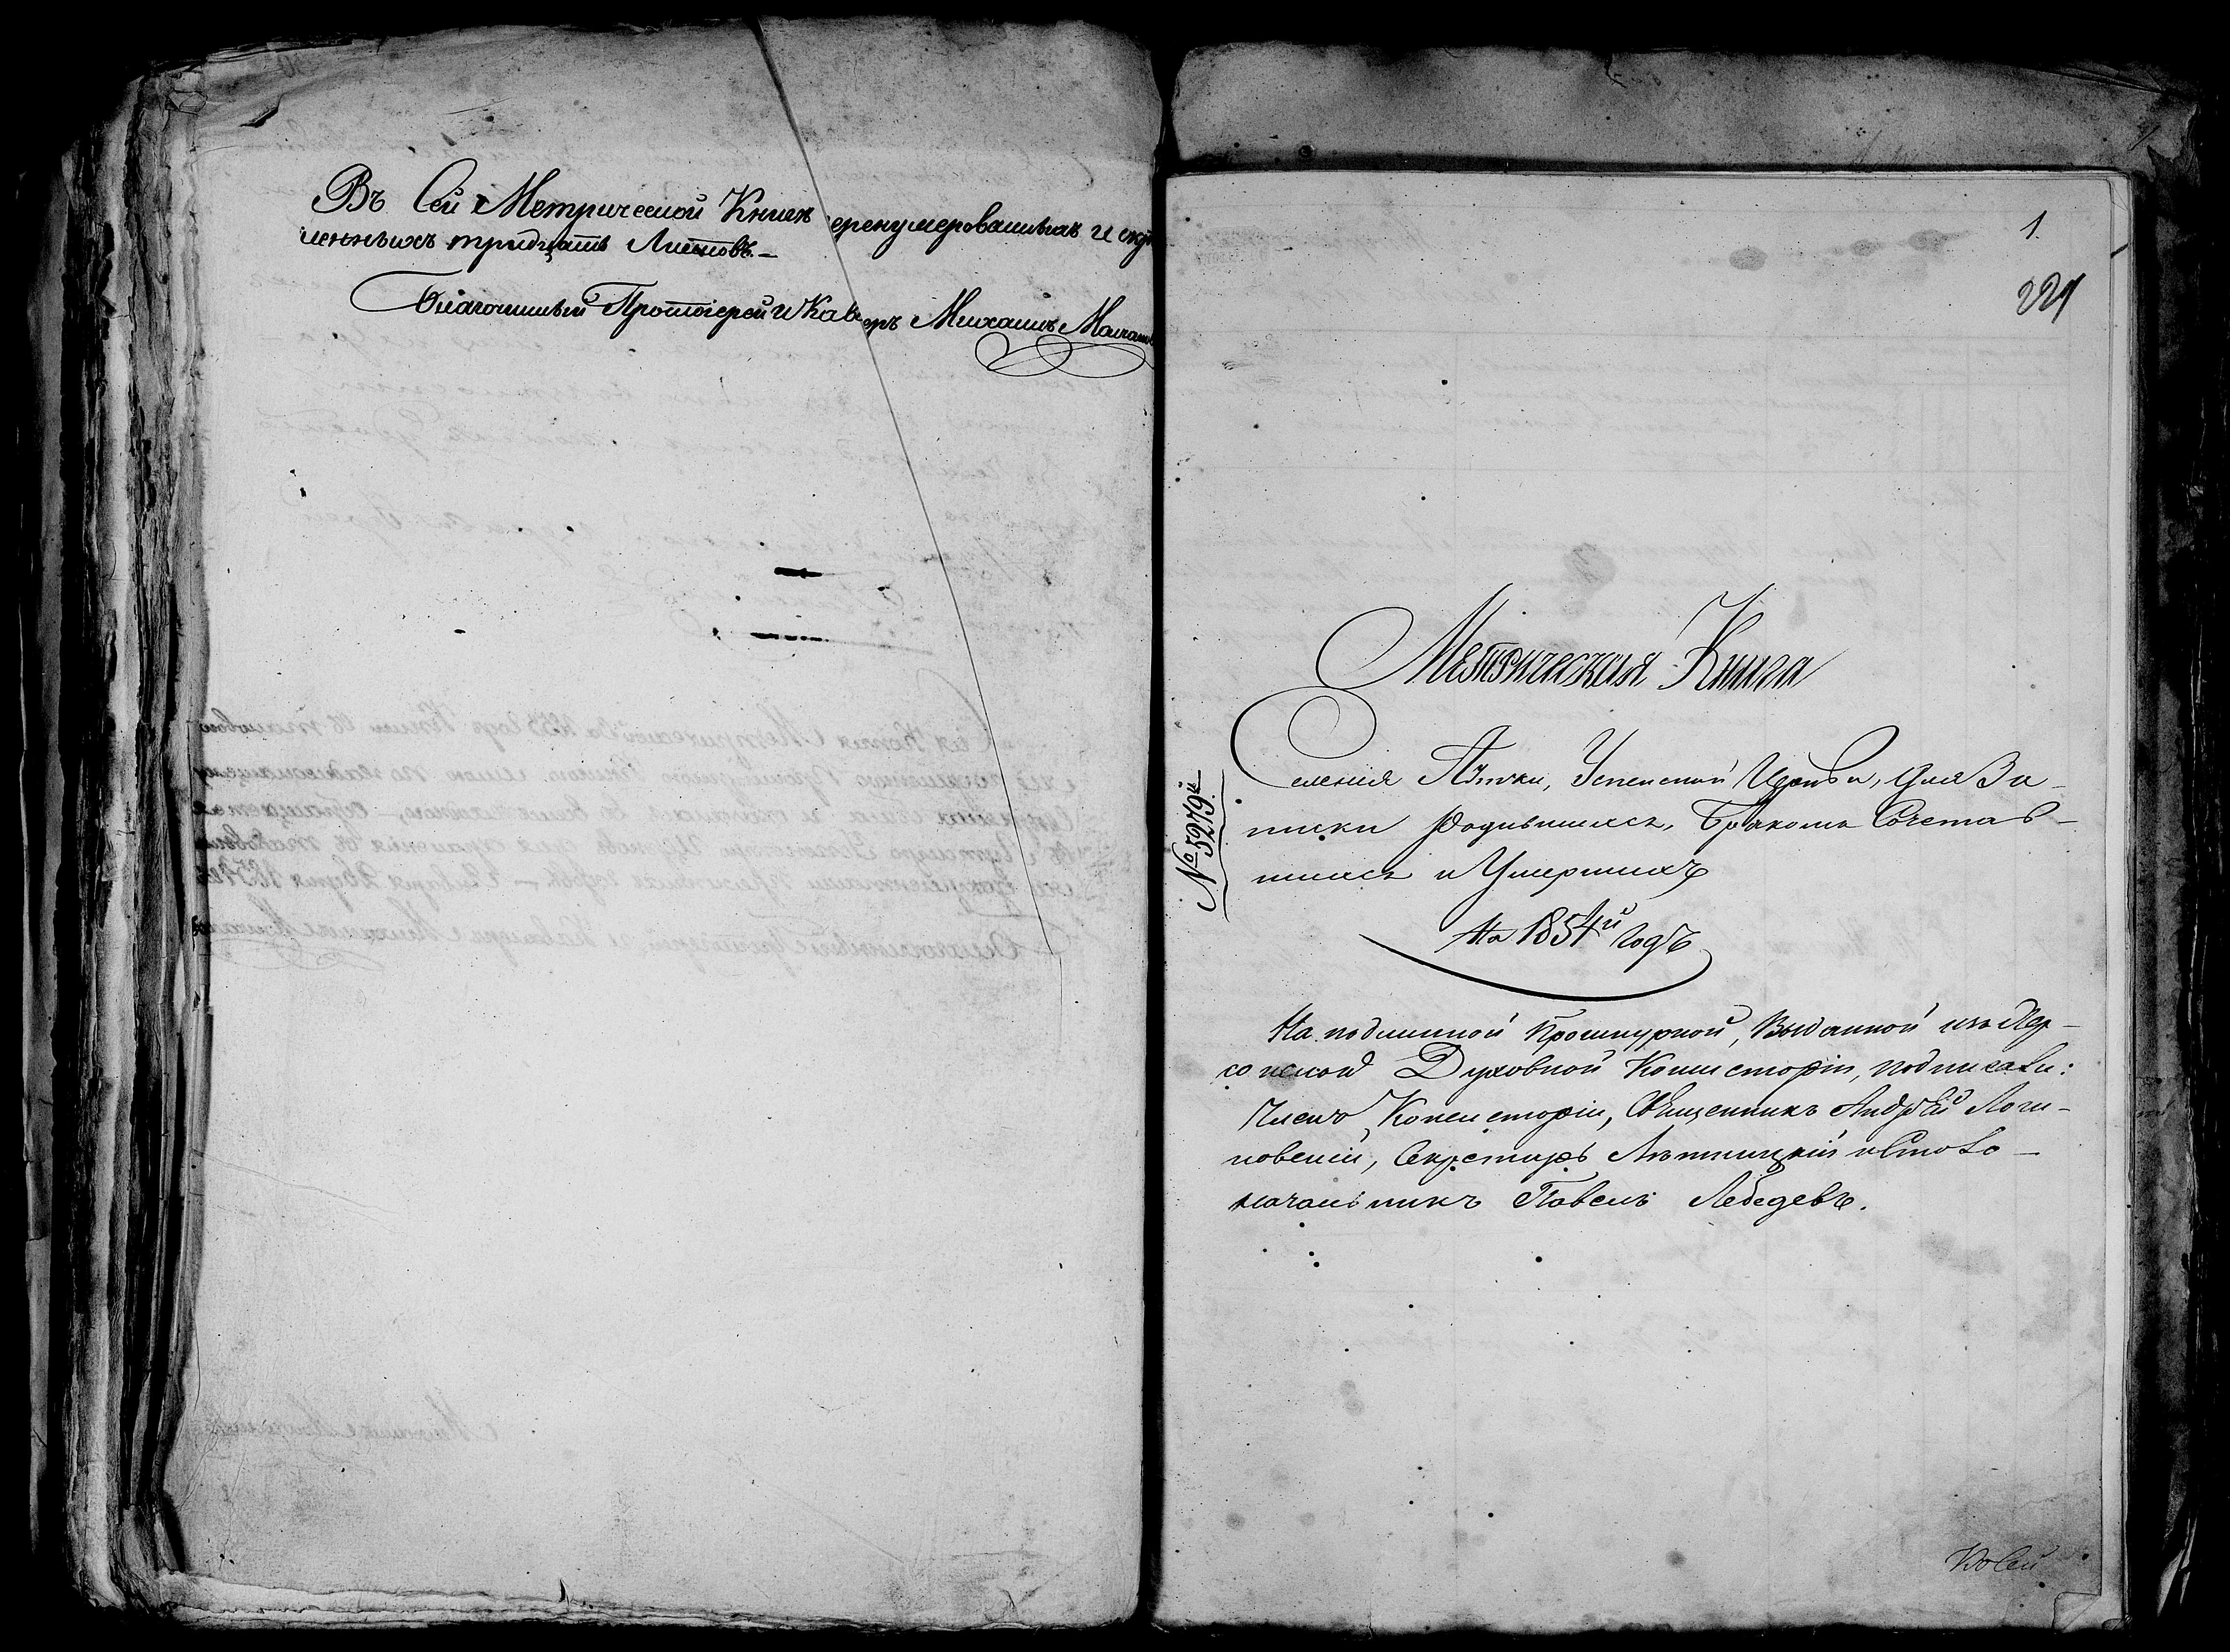 Въ Сей Метрической Книгѣ перенумерованныхъ и скрѣп
ленныхъ тридцать Листовъ. –
Благочинный Протоіерей и Кавалеръ Михаилъ
1.
221
Метрическая Книга
Селенія Пятки, Успенской Церкви, для За-
писки Родившихся, Бракомъ Сочетав-
шихся и Умершихъ
На 1854й Годъ
№ 5279й
На подлинной Прошнурной, Выданной изъ Хер-
сонской Духовной Консисторіи, подписали:
Членъ Консисторіи, Священникъ Андрей Логи-
новскій, Секретарь Лѣтницкій и Столо-
начальникъ Павелъ Лебедевъ.